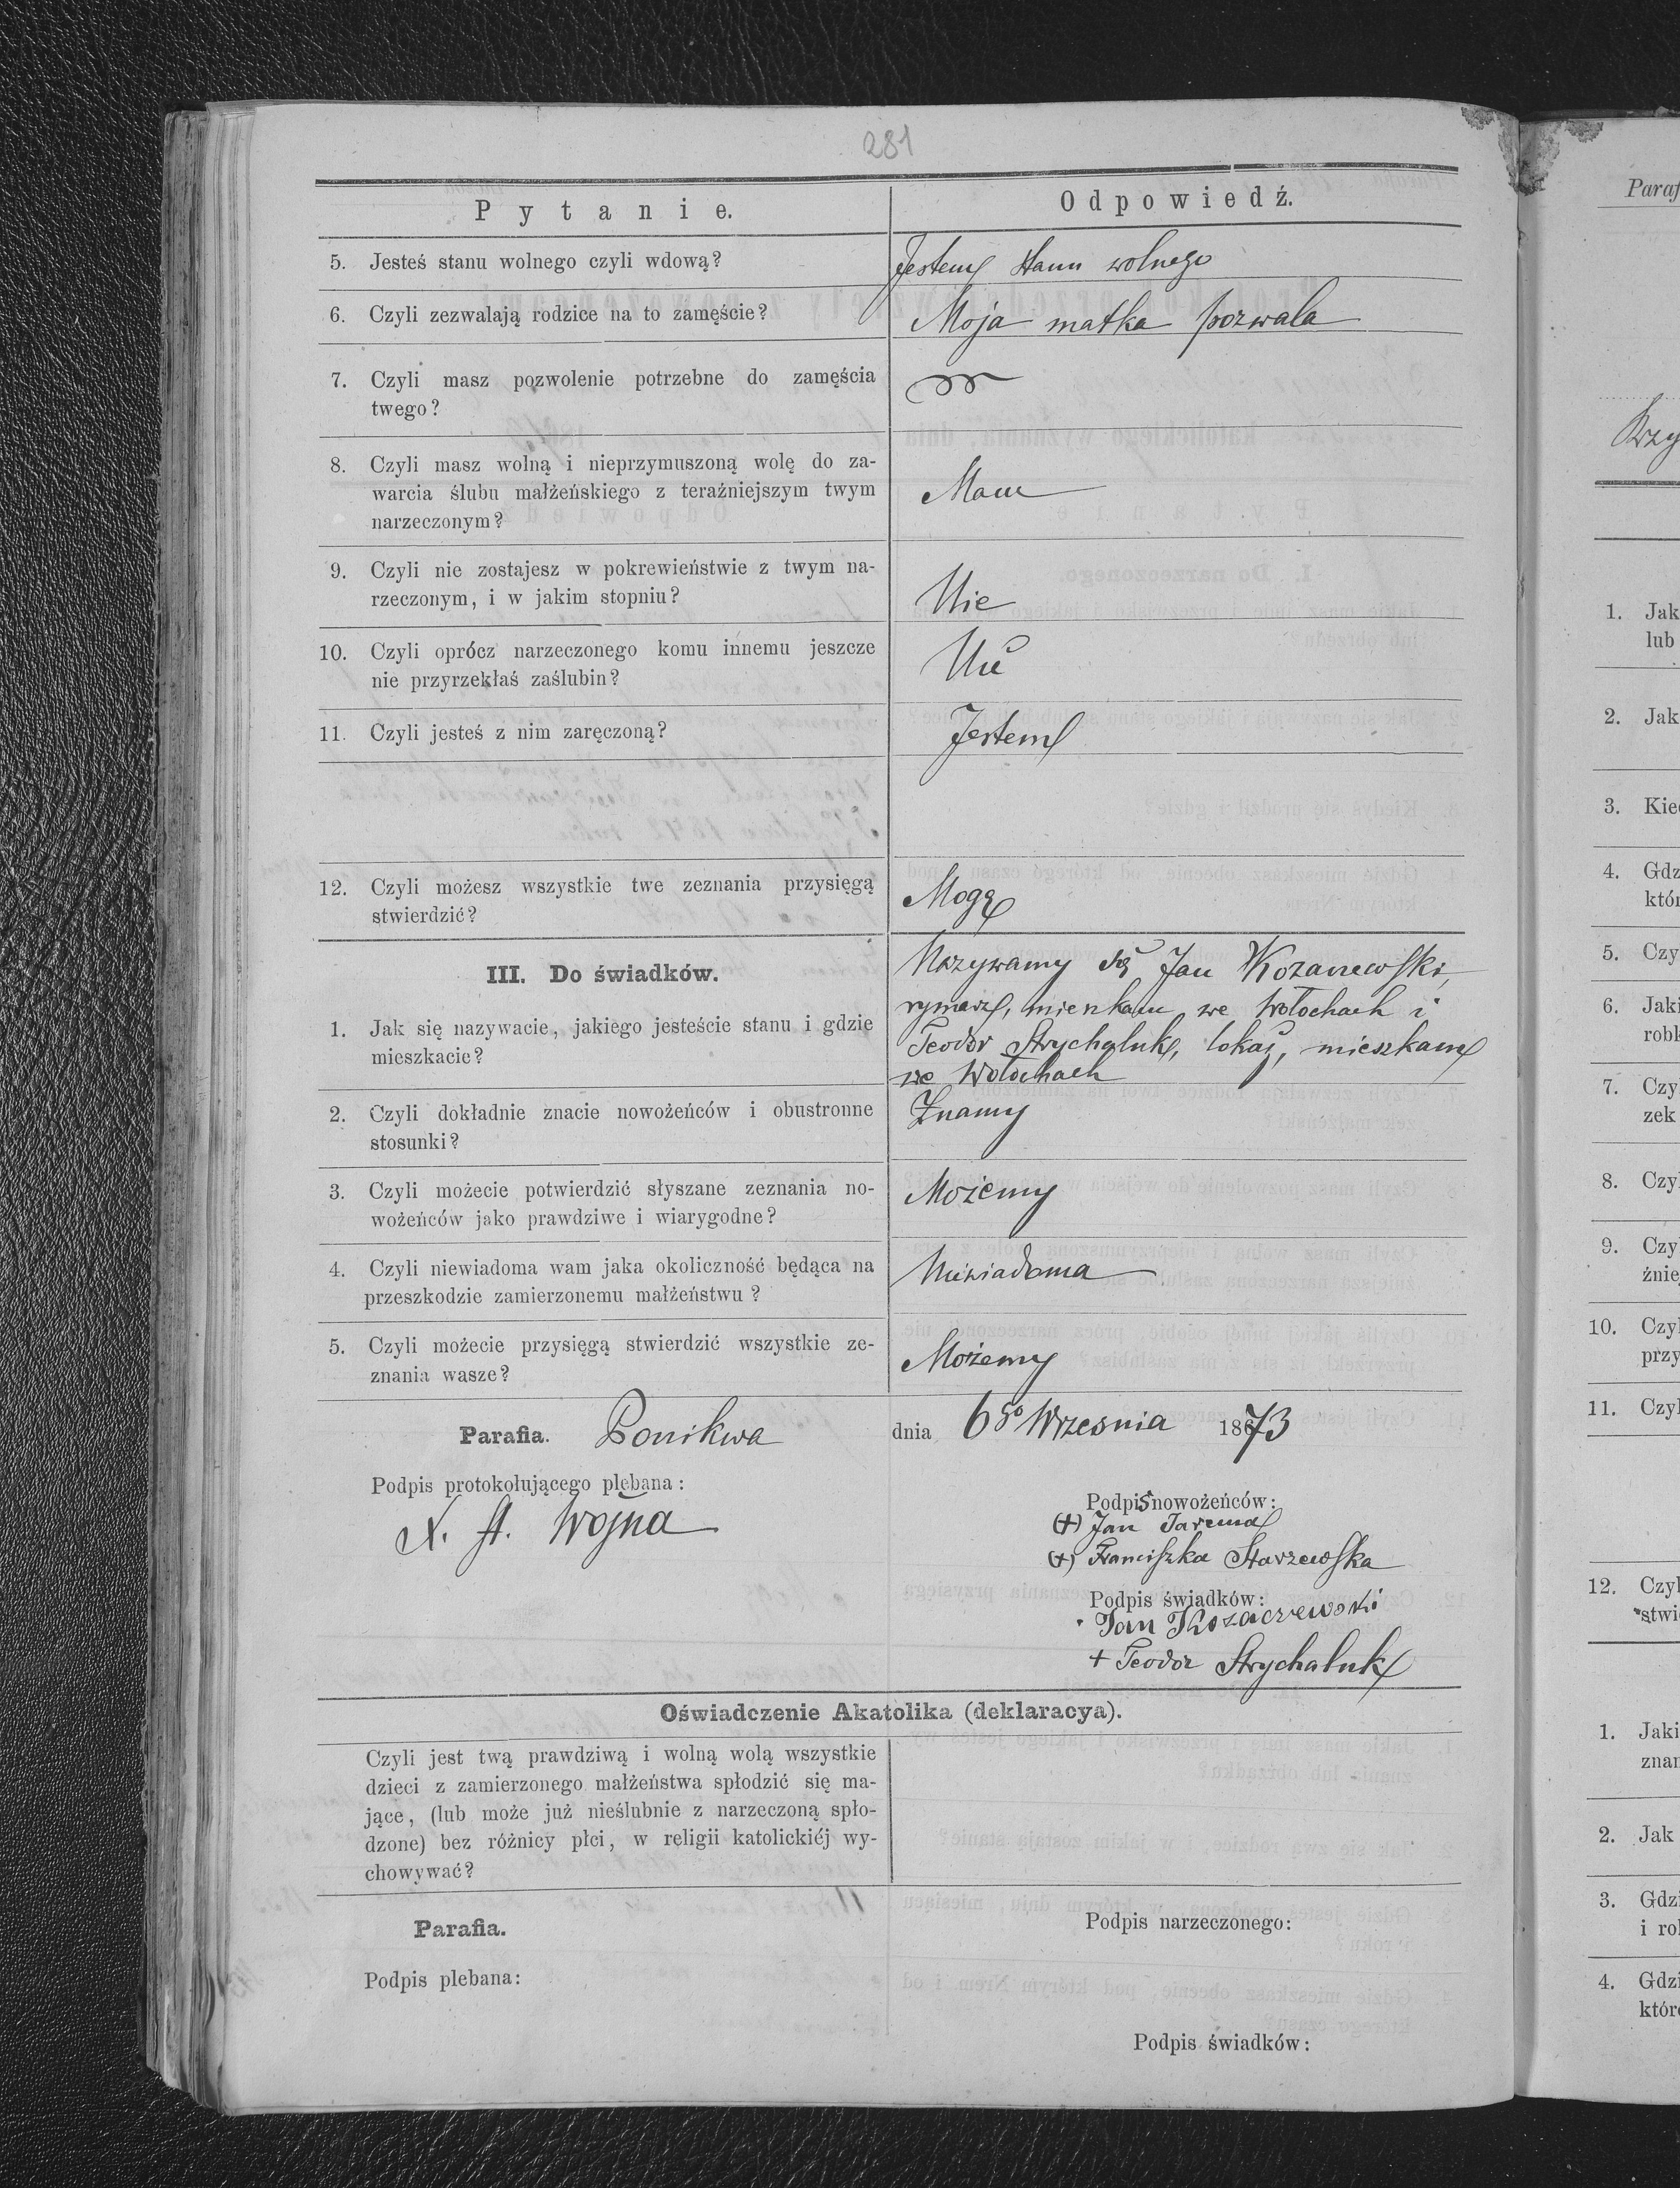 281
Pytanie.
Odpowiedź.
5. Jesteś stanu wolnego czyli wdową?
Jestem stanu wolnego
6. Czyli zezwalają rodzice na to zamęście?
Moja matka pozwala
7. Czyli masz pozwolenie potrzebne do zamęścia
twego?
8. Czyli masz wolną i nieprzymuszoną wolę do za-
warcia ślubu małżeńskiego z teraźniejszym twym
narzeczonym?
Mam
9. Czyli nie zostajesz w pokrewieństwie z twym na-
rzeczonym, i w jakim stopniu?
Nie
10. Czyli oprócz narzeczonego komu innemu jeszcze
nie przyrzekłaś zaślubin?
Nie
11. Czyli jesteś z nim zaręczoną?
Jestem
12. Czyli możesz wszystkie twe zeznania przysięgą
stwierdzić?
Mogę
III. Do świadków.
1. Jak się nazywacie, jakiego jesteście stanu i gdzie
mieszkacie?
Nazywamy się Jan
rymarz, mieszkam we Wołochach i
Teodor Strychaluk, lokaj, mieszkam
we Wołochach
2. Czyli dokładnie znacie nowożeńców i obustronne
stosunki?
Znamy
3. Czyli możecie potwierdzić słyszane zeznania no-
wożeńców jako prawdziwe i wiarygodne?
Możemy
4. Czyli niewiadoma wam jaka okoliczność będąca na
przeszkodzie zamierzonemu małżeństwu?
Niewiadoma
5. Czyli możecie przysięgą stwierdzić wszystkie ze-
znania wasze?
Możemy
Parafia. Ponikwa
dnia 6go Wrzesnia 1873
Podpis protokołującego plebana:
X. A. Wojna
Podpis nowożeńców:
(+) Jan Jarema
(+) Franciszka Starzewska
Podpis świadków:
Jan Kozaczewski
+ Teodor Strychaluk
Oświadczenie Akatolika (deklaracya).
Czyli jest twą prawdziwą i wolną wolą wszystkie
dzieci z zamierzonego małżeństwa spłodzić się ma-
jące, (lub może już nieślubnie z narzeczoną spło-
dzone) bez różnicy płci, w religii katolickiéj wy-
chowywać?
Parafia.
Podpis narzeczonego:
Podpis plebana:
Podpis świadków:
Paraf
Krzy
1. Jak
lub
2. Jak
3. Kie
4. Gdz
któr
5. Czy
6. Jaki
robk
7. Czy
zek
8. Czy
9. Czy
źnie
10. Czyl
przy
11. Czyl
12. Czyl
stwi
1. Jaki
znan
2. Jak
3. Gdzi
i rol
4. Gdzi
któr